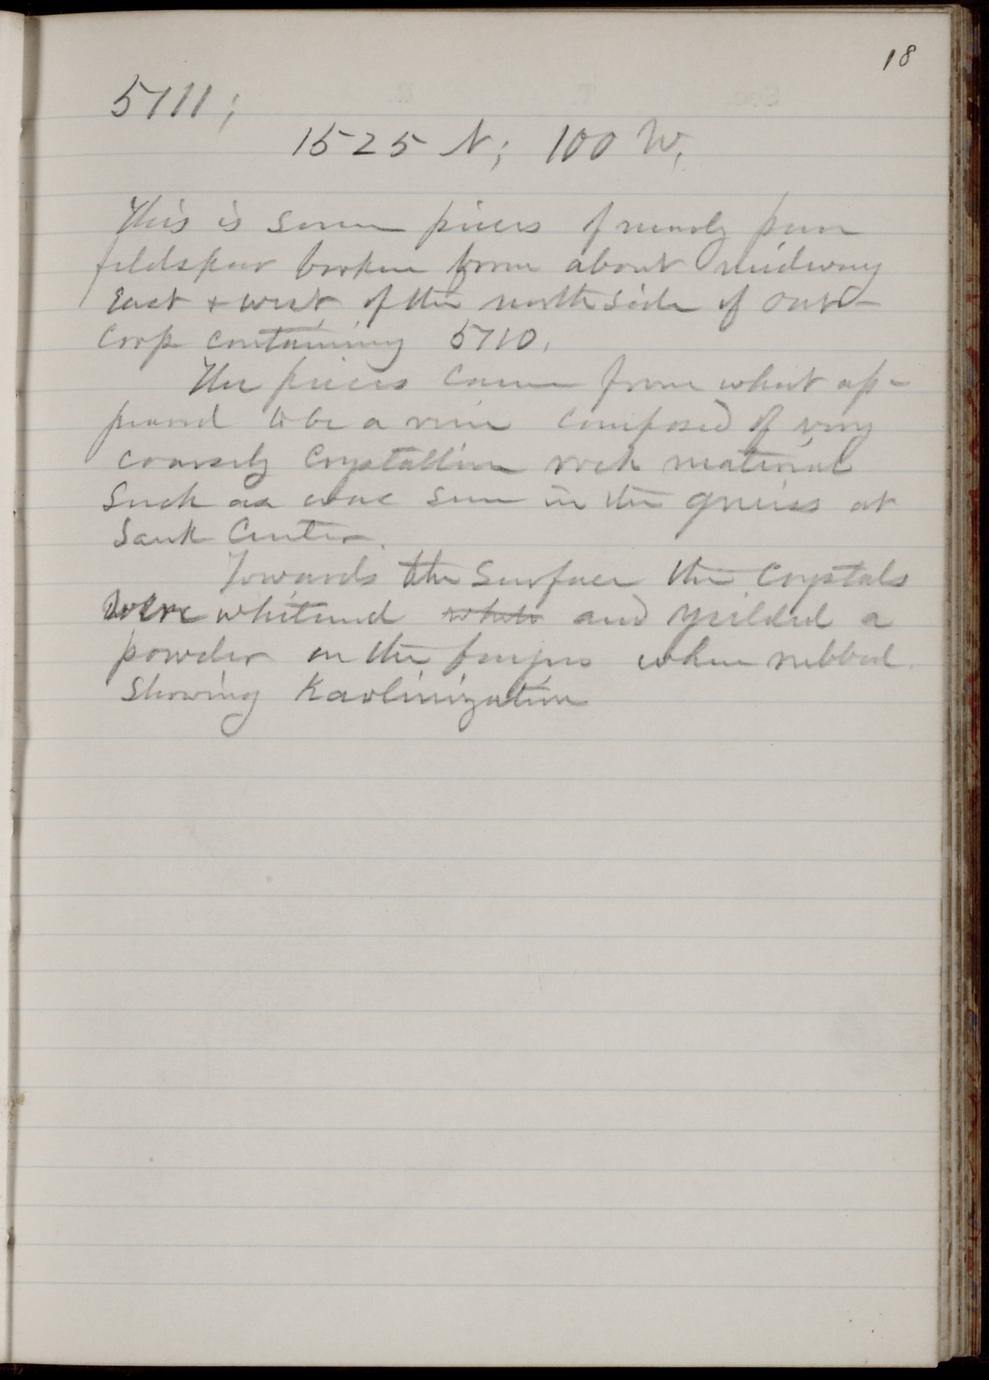 18
5711;
1525 N; 100 W,
This is some pieces of nearly pure
feldspar broken from about midway
East + west of the north side of out-
crop containing 5710.
The pieces came from what ap-
peared to be a vein composed of very
coarsely crystalline rock material
Such as was seen in the gneiss at
Sauk Center.
Towards the Surface the Crystals
were whitened white and yeilded a
powder on the fingers when rubbed.
Showing Kaolinization